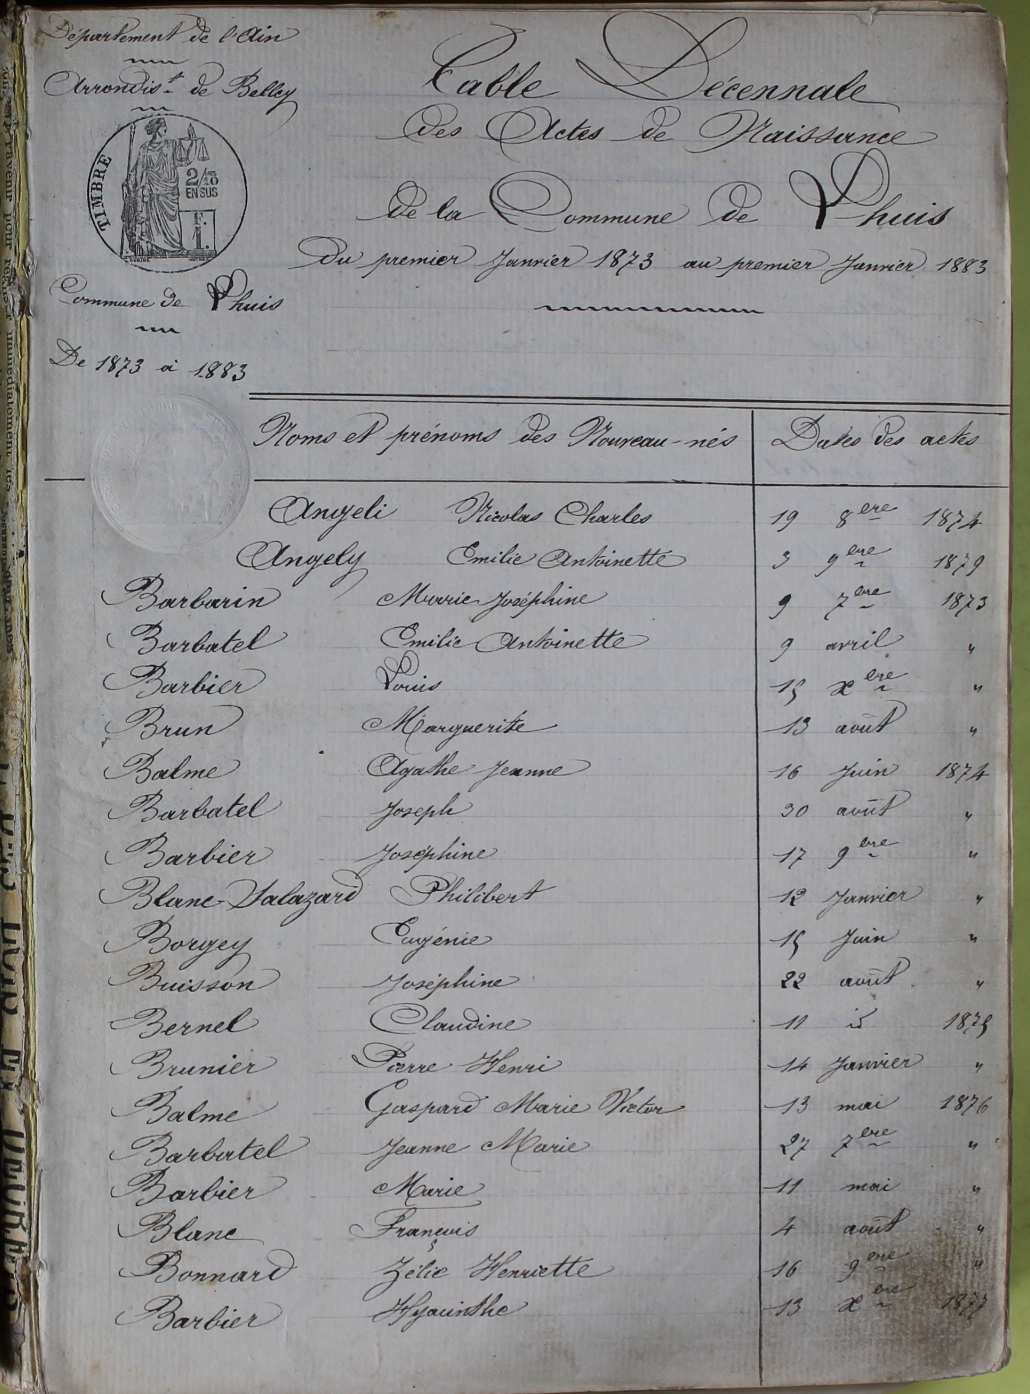 Département de l'Ain
Arrondist de Belley
TIMBRE
2/10
EN SUS
F.
1.
Commune de Lhuis
De 1873 à 1883
Table Décennale
des Actes de Naissance
de la Commune de Lhuis
Du premier Janvier 1873 au premier Janvier 1883
Noms et prénoms des Nouveau-nés Dates des actes
Angeli Nicolas Charles 19 8ere 1874
Angely Emilie Antoinette 3 9ere 1879
Barbarin Marie Joséphine 9 7ere 1873
Barbatel Emilie Antoinette 9 avril "
Barbier Louis 15 xere "
Brun Marguerite 13 août "
Balme Agathe Jeanne 16 Juin 1874
Barbatel Joseph 30 août "
Barbier Joséphine 17 9ere "
Blanc-Salazard Philibert 12 Janvier "
Borgey Eugénie 15 Juin "
Buisson Joséphine 22 août "
Bernel Claudine 11 id 1875
Brunier Pierre Henri 14 Janvier "
Balme Gaspard Marie Victor 13 mai 1876
Barbatel Jeanne Marie 27 7ere "
Barbier Marie 11 mai "
Blanc François 4 août "
Bonnard Zélie Henriette 16 9ere "
Barbier Hyacinthe 13 xere 1877